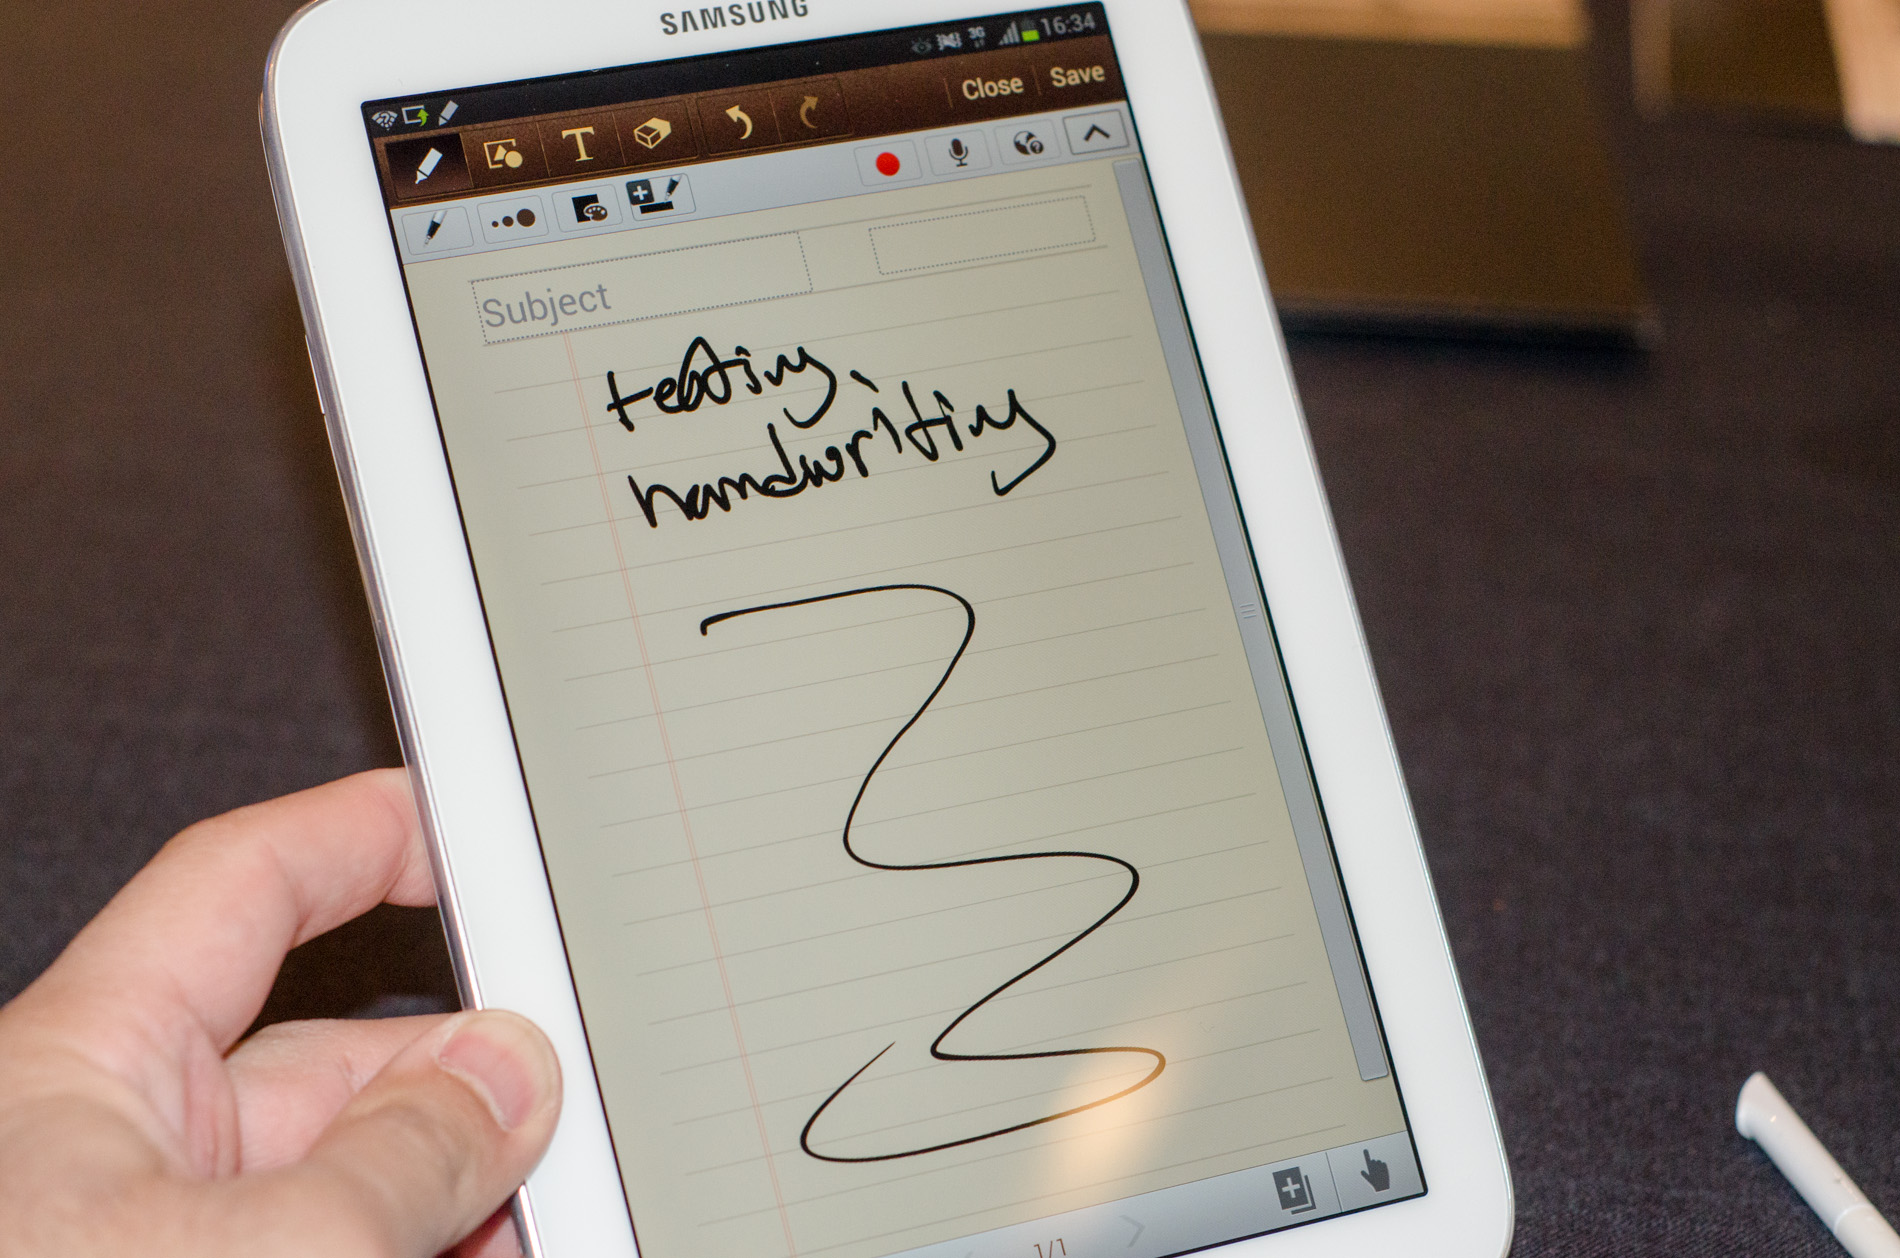 SAMSUNG
3G
16:34
T
Close Save
Subject
testing
handwriting
1/1